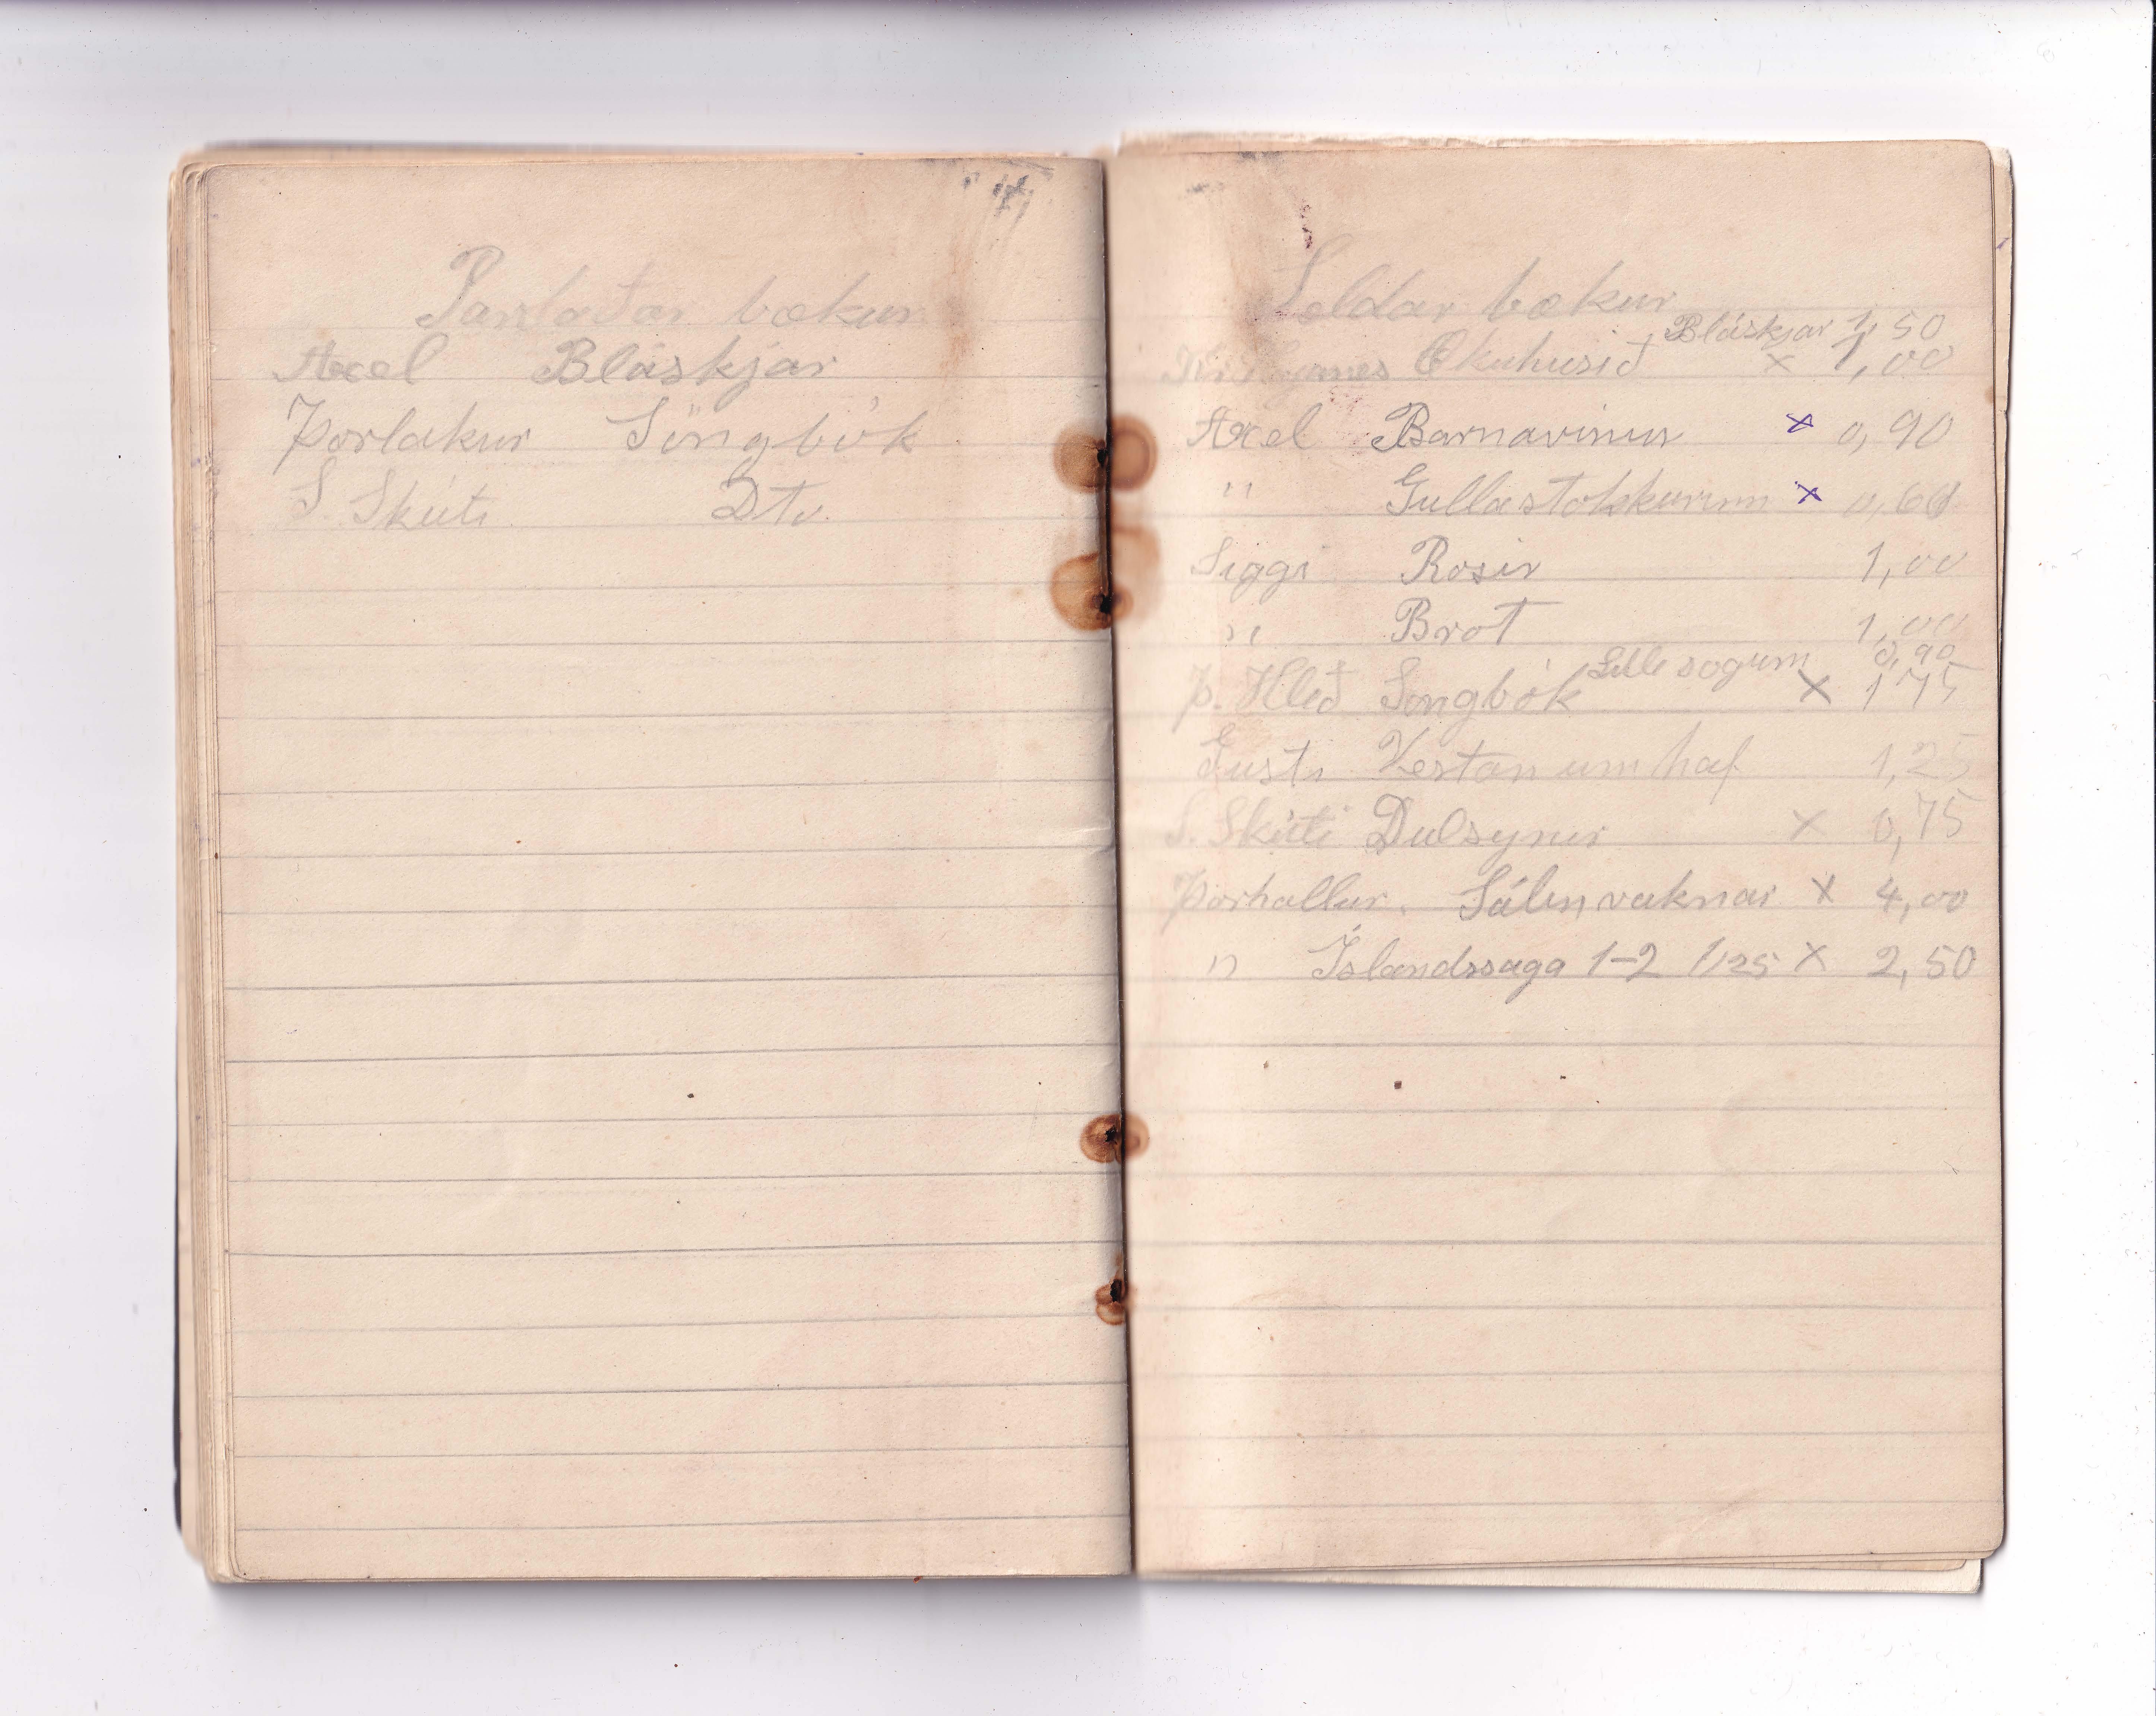 Pantaðar bækur
Axel Bláskjár
Þorlakur Söngbók
S. Skúli Dto.
Seldar bækur
Bláskjar 1,50
Okuhusið × 1,00
Axel Barnavinur × 0,90
" Gullastokkurinn × 0,60
Siggi Rosir 1,00
" Brot 1,00
sogum 0,90
Þ. Hleð Songbók × 1,75
Gusti Vestan um haf 1,25
S. Skúli Dulsynir × 0,75
Þorhallur. Sálin vaknar × 4,00
" Íslandssaga 1-2 1,25 × 2,50